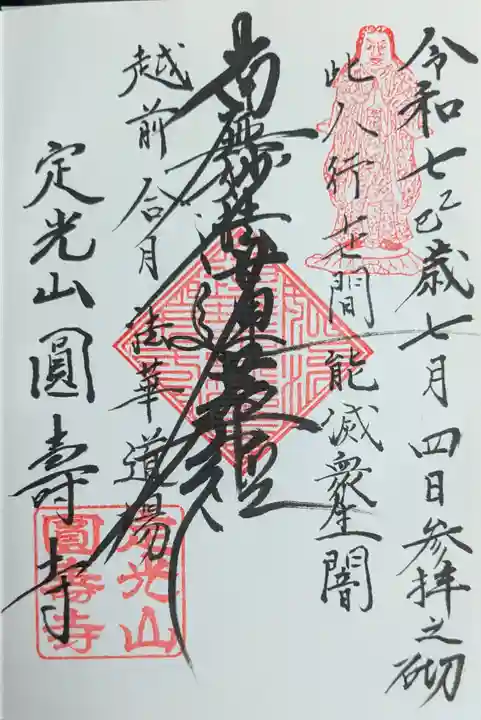 令和七乙巳歳七月四日参拝之砌
此人行世間 能滅衆生闇
南無妙法蓮華経
越前 合月 法華道場
定光山圓壽寺
定光山
圓壽寺